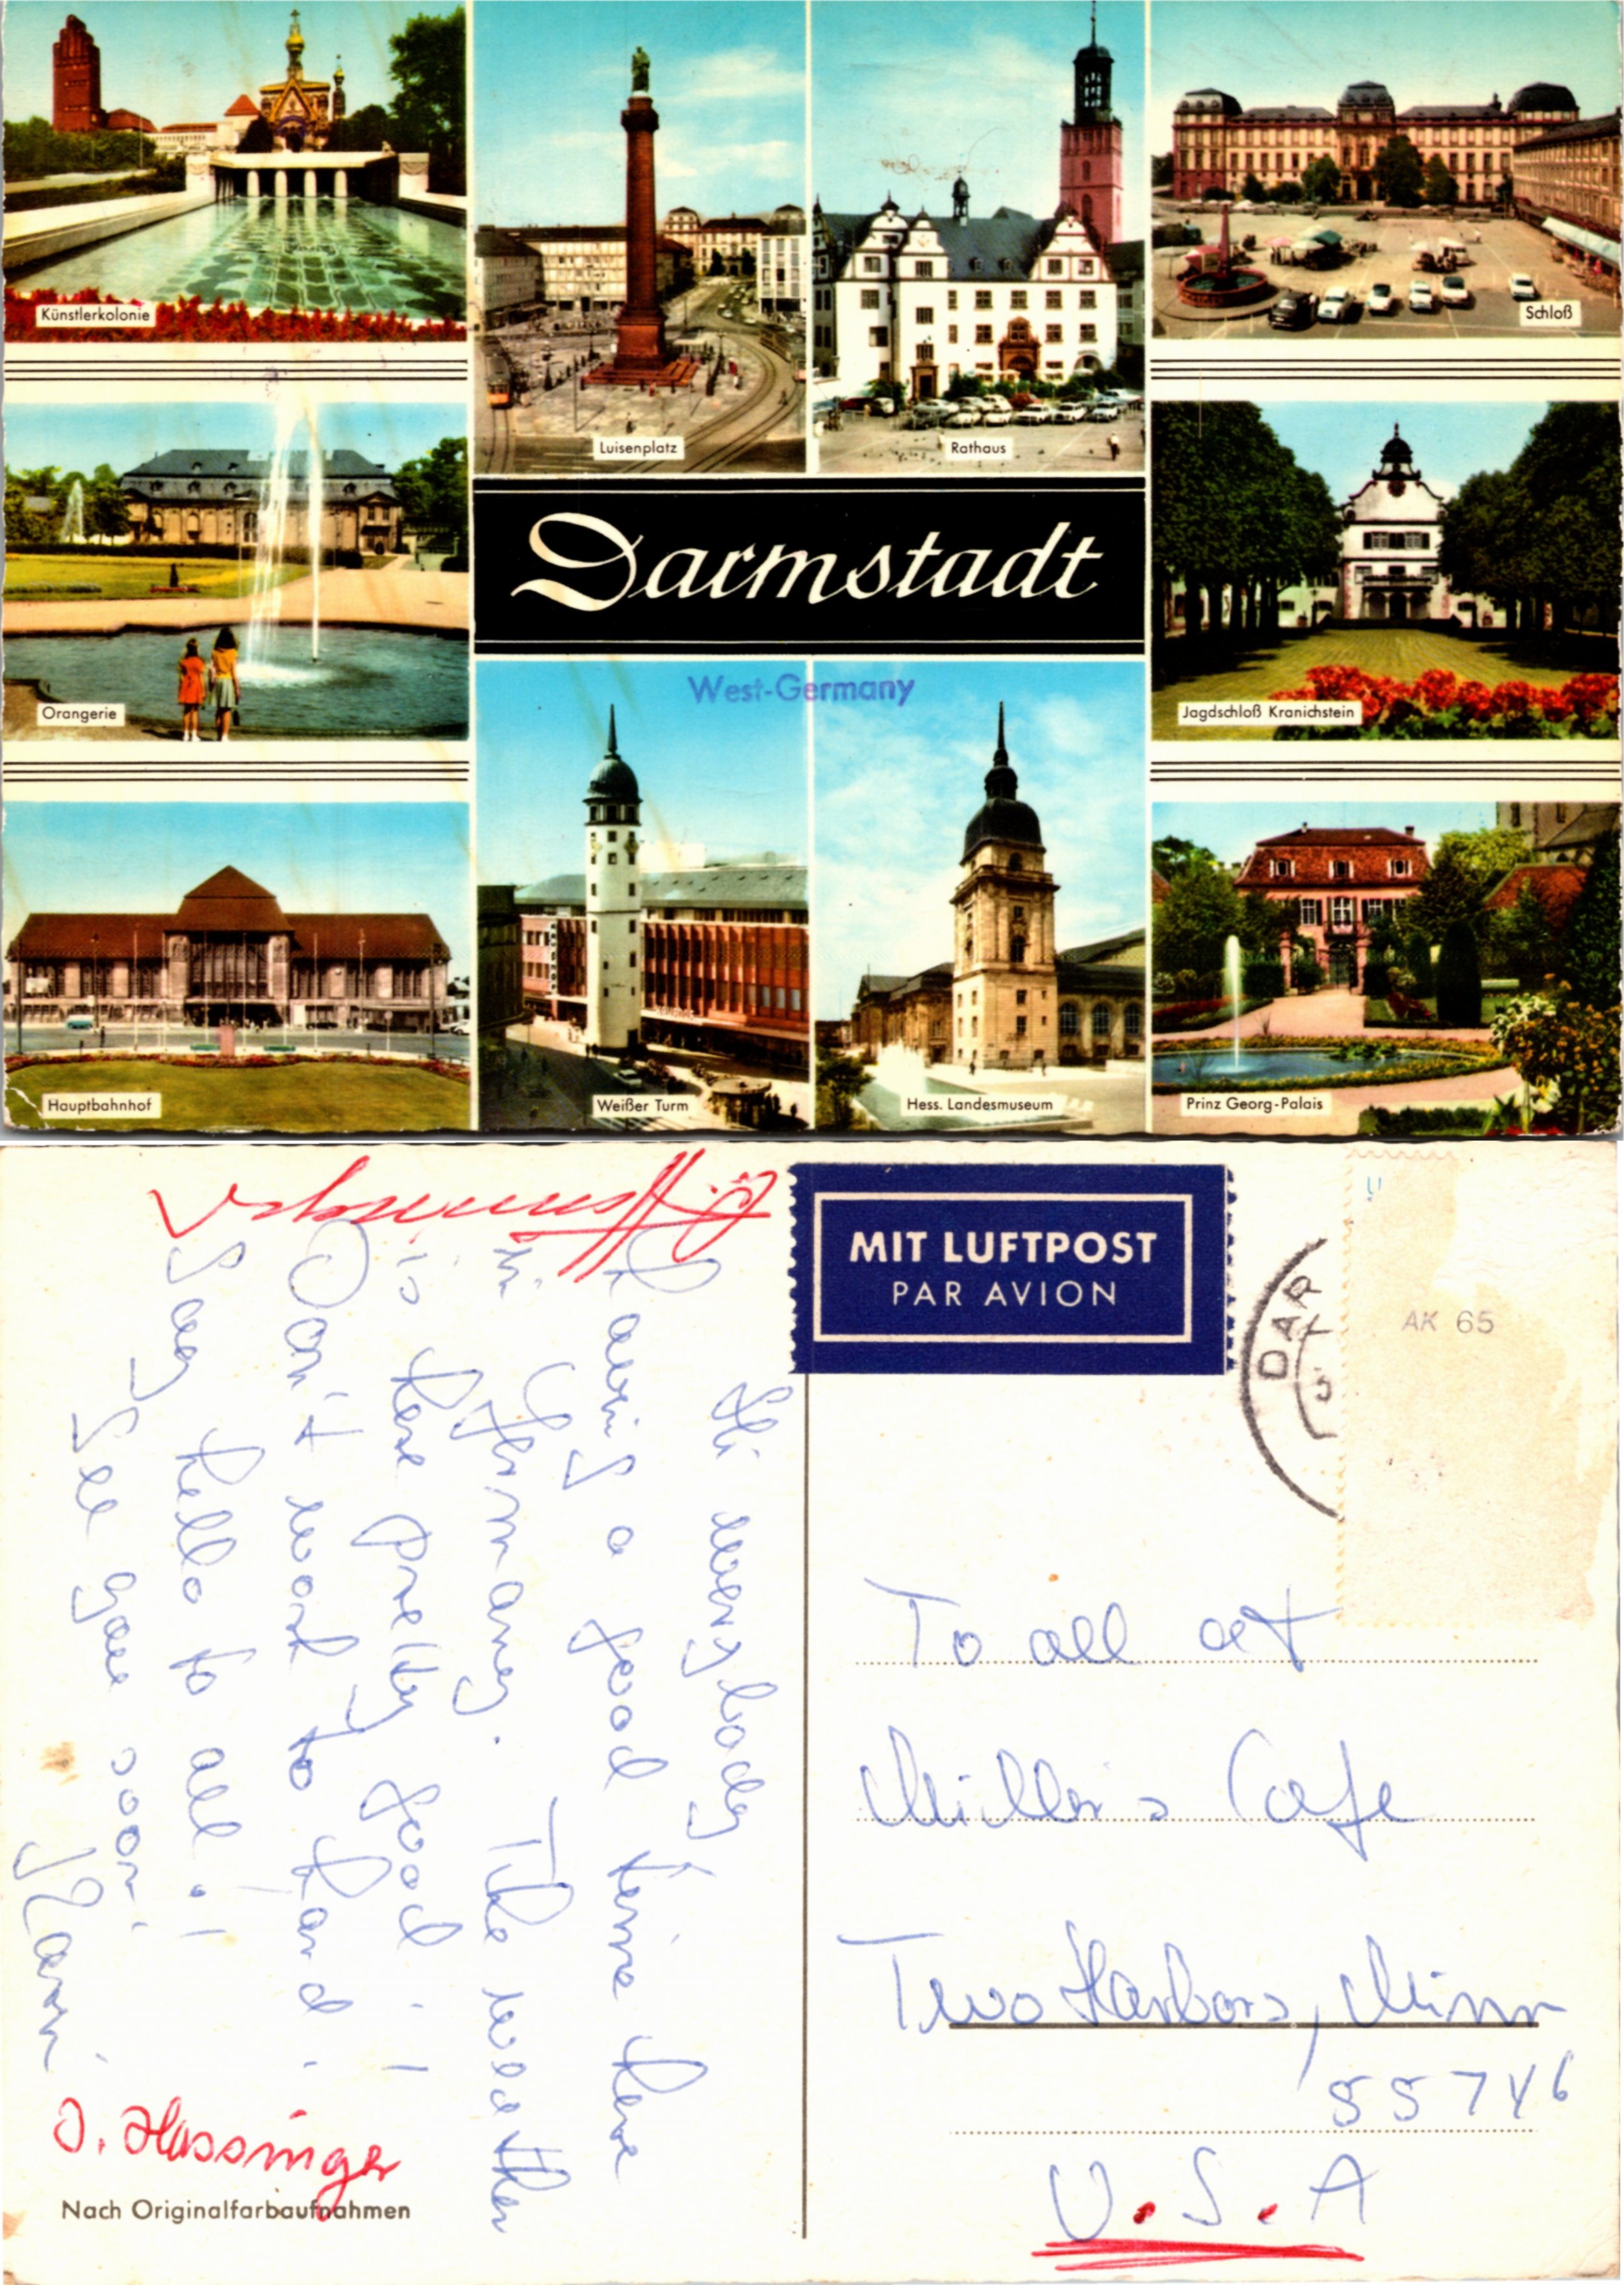 Künstlerkolonie
Luisenplatz
Rathaus
Schloß
Darmstadt
Orangerie
Jagdschloß Kranichstein
West-Germany
Hauptbahnhof
Weißer Turm
Hess. Landesmuseum
Prinz Georg-Palais
MIT LUFTPOST
PAR AVION
DAR
AK 65
Hi everybody!
Having a good time here
in Germany. The weather
is here pretty good!
Don't work to hard!
Say hello to all!
See you soon!
J. Hassinger
Nach Originalfarbaufnahmen
To all at
Miller's Cafe
Two Harbors, Minn
55746
U.S.A